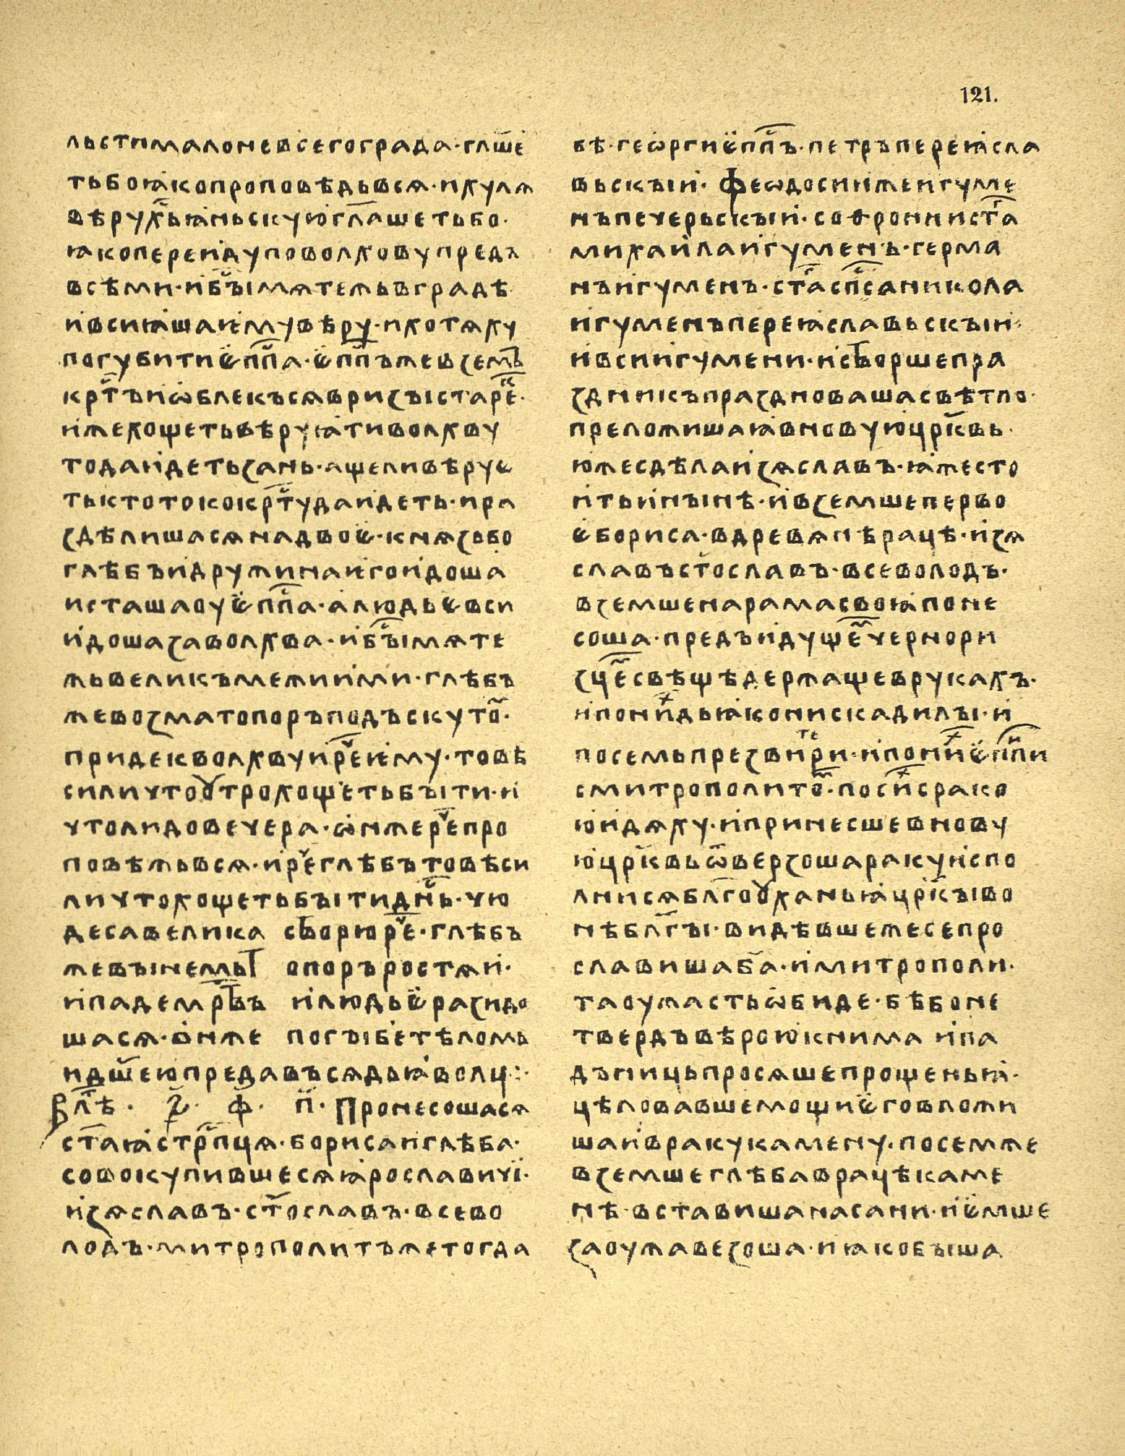 121.
льстималоневсегограда·глш҃е
тьбоꙗкопроповѣдьвсѧ·ихулѧ
вѣрухс҃ьꙗньскуюгл҃ашетьбо·
ꙗкопереидуповолховупредъ
всѣми·ибы҃мѧтежьвградѣ
ивсиꙗшаимувѣру·ихотѧху
погубитиєпп҃а·єпп҃ъжевземъ
крⷭ҇тъиѡблекъсѧвризыстарⷱ҇е·
ижехощетьвѣруꙗтиволхву
тодаидетьзань·ащеливѣрує
тьктотококрⷭ҇тудаидеть·ира
здѣлишасѧнадвоє·кнѧзьбо
глѣбъидружинаигоидоша
исташаоуєпп҃а·алюдьєвси
идошазаволхва·ибы҃мѧте
жьвеликъмежиими·глѣбъ
жевозматопоръподъскуто҇·
придекволхвуирⷱ҇еиму·товѣ
силиутоꙋтрохощетьбыти·и
утолидовечера·ѡнжерⷱ҇епро
повѣжьвсѧ·ирⷱ҇еглѣбътовѣси
лиутохощетьбытиднⷭ҇ь·чю
десавелика створюрⷱ҇е·глѣбъ
жевынемьт опоръростѧи·
ипадемрт҃въ илюдьєразидо
шасѧ·ѡнже погыбетѣломь
идш҃еюпредавъсѧдьꙗволу:·
Влⷮѣ· ҂ѕ҃· ф҃· п҃· Пронесошасѧ
ст҃аꙗстрⷭ҇пцѧ·борисаиглѣба·
совокупившесѧꙗрославичі·
изѧславъ·ст҃ославъ·всево
лодъ·митрополитъжетогда
вѣ·геѡргиєпп҃ъ·петръпереꙗсла
вьскыи· Феѡдосиижеигуме
нъпечерьскыи·софронииста҃
михаилаигуменъ·герма
нъигуменъ·ста҃спс҃аникола
игуменъпереꙗславьскыи·
ивсиигумени·истворшепра
здникъпраздновашасвѣтло·
преложишаꙗвновуюцрⷦ҇вь·
южесдѣлаизѧславъ·ꙗжесто
итьинынѣ·ивземшеперво
єбориса·вдревѧнѣрацѣ·изѧ
славъст҃ославъ·всеволодъ·
вземшенарамасвоꙗпоне
соша·предъидущⷨ҇ечернори
зцⷨ҇есвѣщѣдержащеврукахъ·
ипонихдьꙗконискадилы·и
посемьпрезвитери·ипонихєппи
смитрополито҇·посихсрако
юидѧху·ипринесшевнову
юцрⷦ҇вьѿверзошаракуиспо
лнисѧблг҃оꙋханьꙗцрⷦ҇ыво
нѣблг҃ы·видѣвшежесепро
славишаба҃·имитрополи·
таоужастьѡбиде·бѣбоне
твердъвѣроюкнима ипа
дъницьпросѧшепрощеньꙗ·
цѣловавшемощиєговложи
шаивракукамену·посемже
вземшеглѣбаврацѣкаме
нѣ·вставишанасани·иємше
заоужавезоша·иꙗкобыша